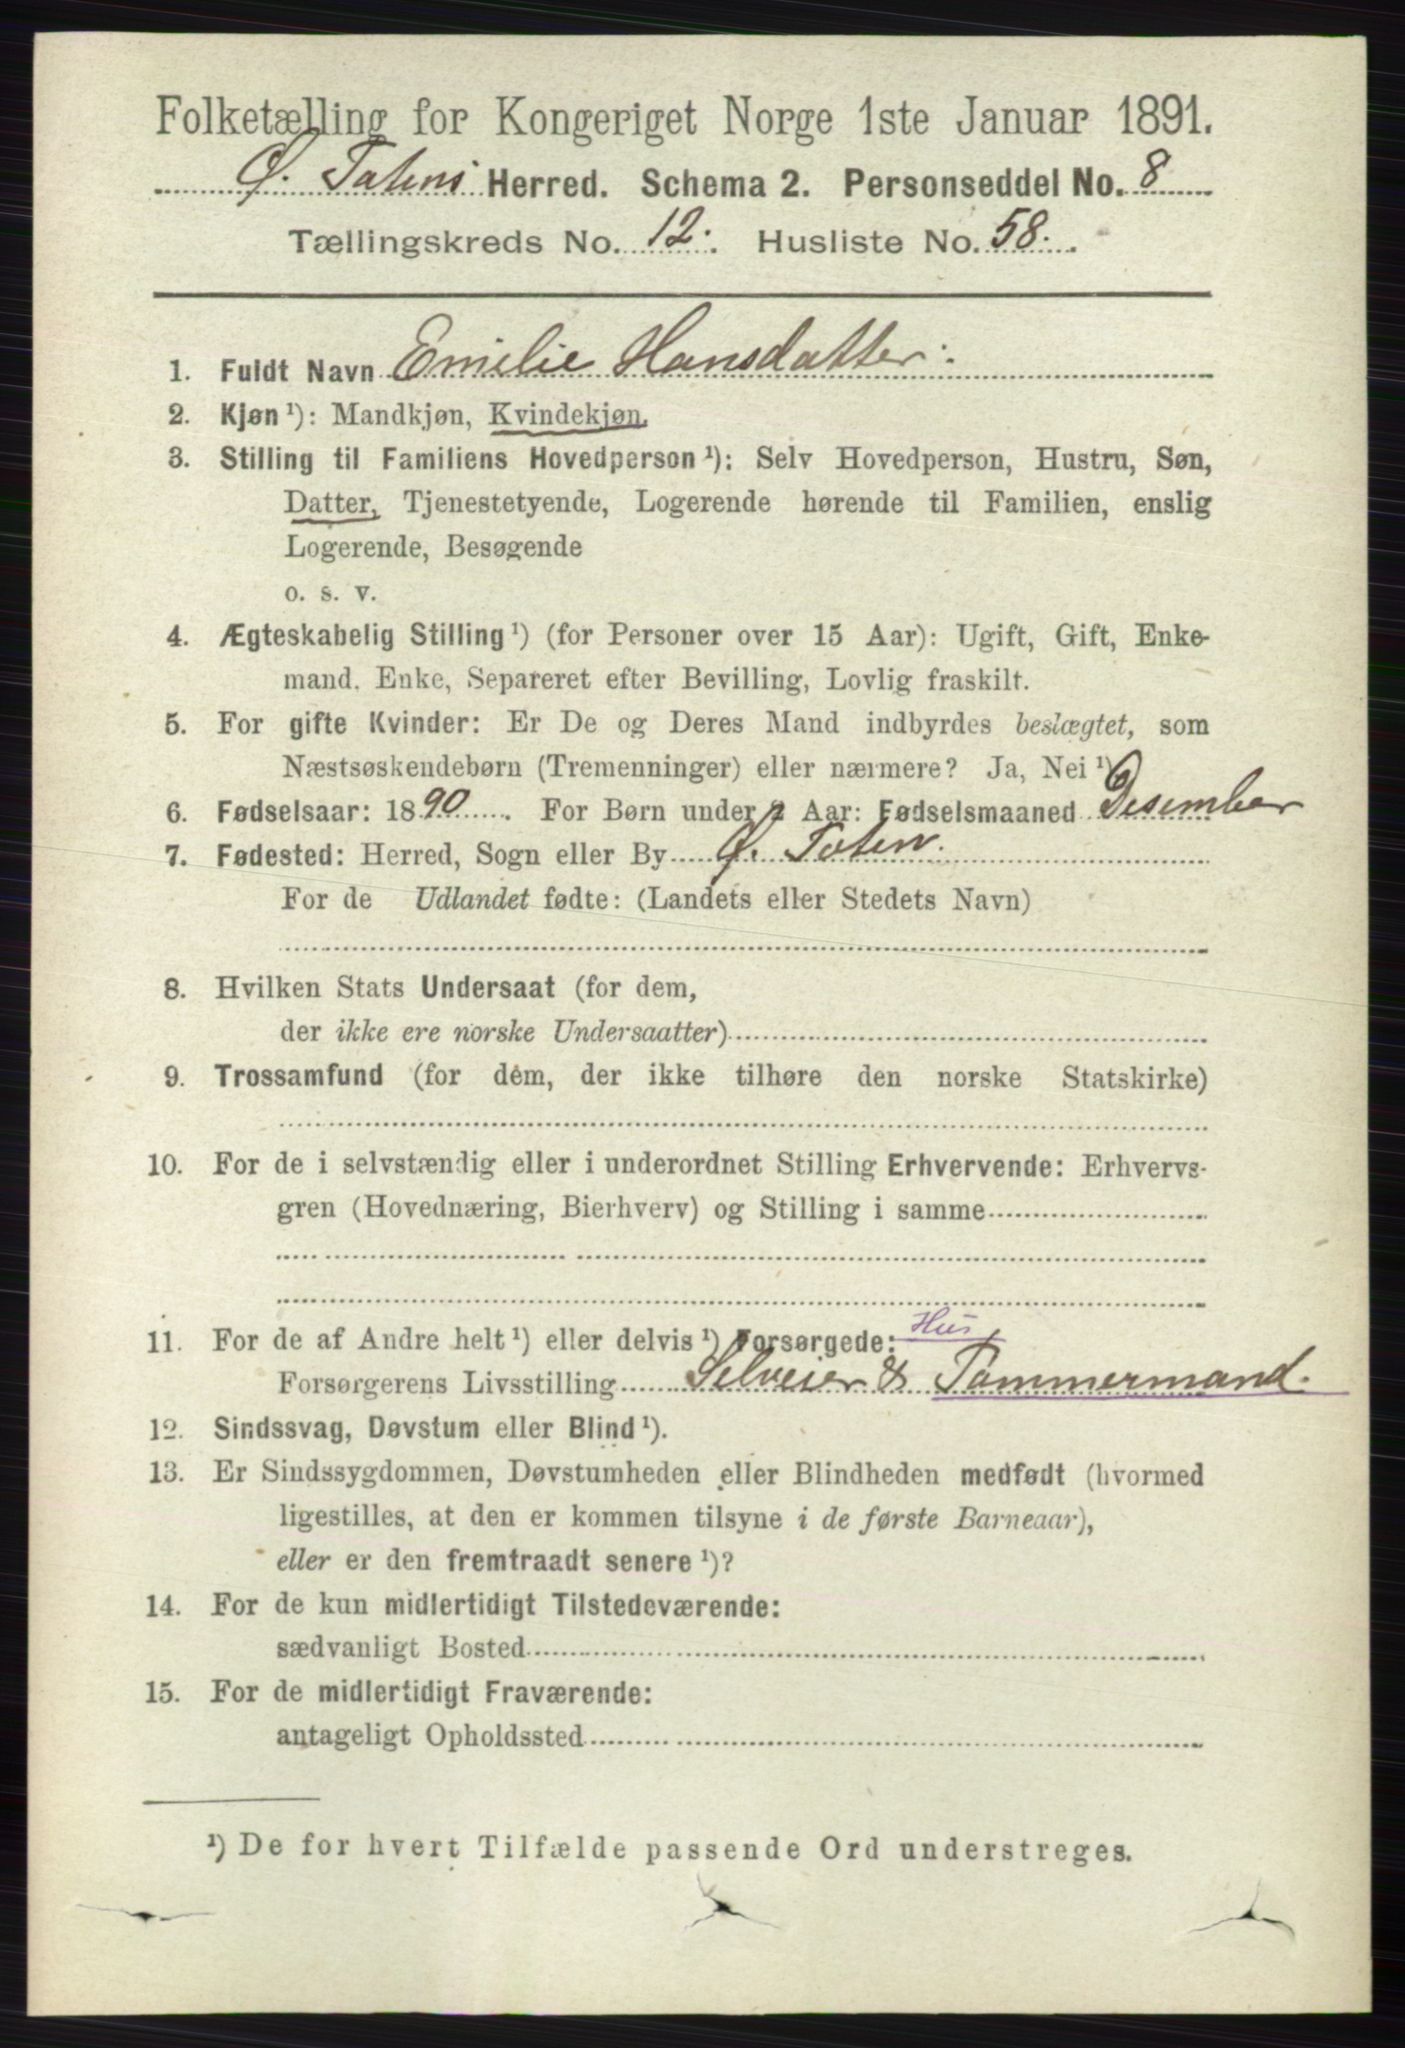 Folketælling for Kongeriget Norge 1ste Januar 1891.
Ø. Totens Herred. Schema 2. Personseddel No. 8
Tællingskreds No. 12. Husliste No. 58.
1. Fuldt Navn Emilie Hansdatter.
2. Kjøn ¹): Mandkjøn, Kvindekjøn.
3. Stilling til Familiens Hovedperson ¹): Selv Hovedperson, Hustru, Søn,
Datter, Tjenestetyende, Logerende hørende til Familien, enslig
Logerende, Besøgende
o. s. v.
4. Ægteskabelig Stilling ¹) (for Personer over 15 Aar): Ugift, Gift, Enke-
mand, Enke, Separeret efter Bevilling, Lovlig fraskilt.
5. For gifte Kvinder: Er De og Deres Mand indbyrdes beslægtet, som
Næstsøskendebørn (Tremenninger) eller nærmere? Ja, Nei ¹)
6. Fødselsaar: 1890. For Børn under 2 Aar: Fødselsmaaned Desember
7. Fødested: Herred, Sogn eller By Ø. Toten.
For de Udlandet fødte: (Landets eller Stedets Navn)
8. Hvilken Stats Undersaat (for dem,
der ikke ere norske Undersaatter)
9. Trossamfund (for dem, der ikke tilhøre den norske Statskirke)
10. For de i selvstændig eller i underordnet Stilling Erhvervende: Erhvervs-
gren (Hovednæring, Bierhverv) og Stilling i samme
11. For de af Andre helt ¹) eller delvis ¹) Forsørgede: Hus
Forsørgerens Livsstilling Selveier & Tømmermand.
12. Sindssvag, Døvstum eller Blind ¹).
13. Er Sindssygdommen, Døvstumheden eller Blindheden medfødt (hvormed
ligestilles, at den er kommen tilsyne i de første Barneaar),
eller er den fremtraadt senere ¹)?
14. For de kun midlertidigt Tilstedeværende:
sædvanligt Bosted
15. For de midlertidigt Fraværende:
antageligt Opholdssted
¹) De for hvert Tilfælde passende Ord understreges.